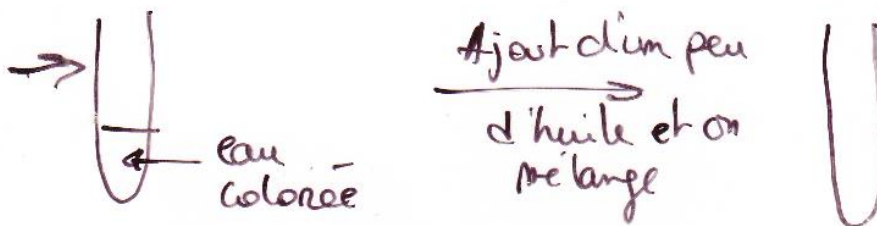 eau
colorée
Ajout d'un peu
d'huile et on
mélange